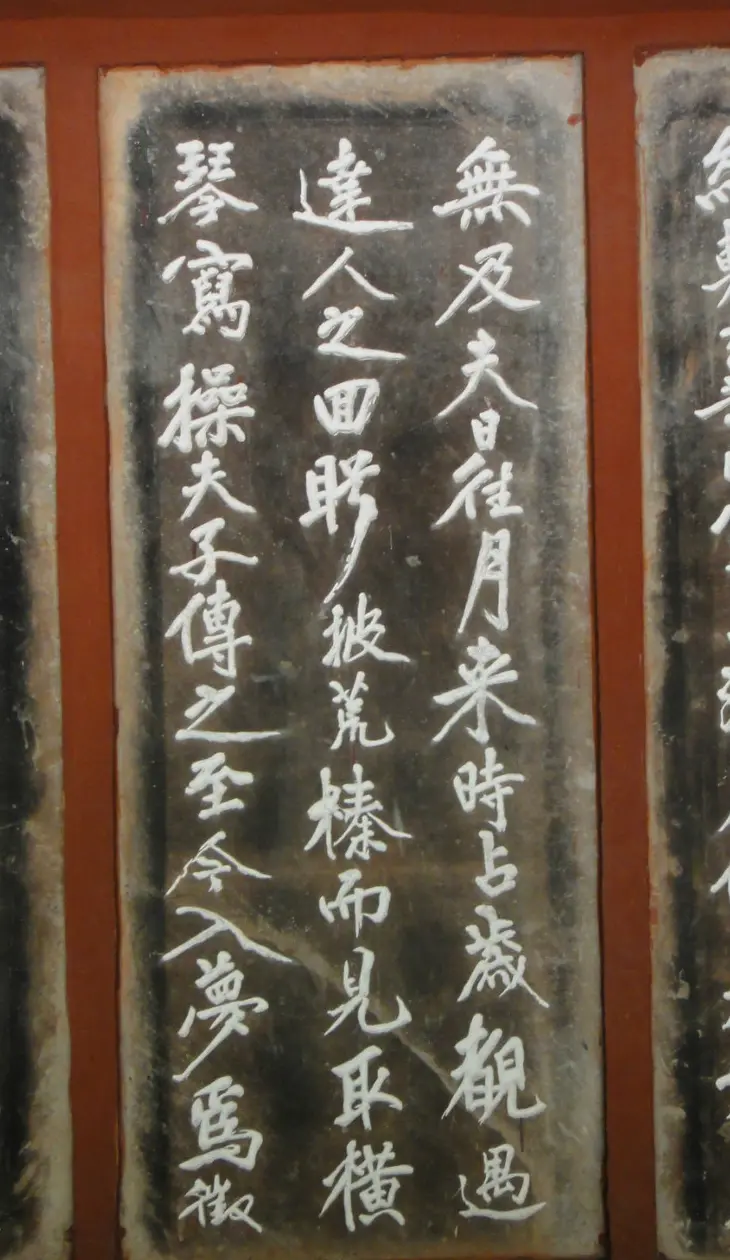 無及夫日往月来時占歲覩遇
達人之囬眄披荒榛而見取橫
琴寫操夫子傳之至今入夢為徵